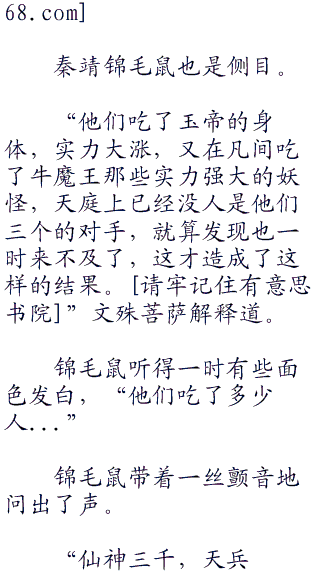 68.com]
秦靖锦毛鼠也是侧目。
“他们吃了玉帝的身
体，实力大涨，又在凡间吃
了牛魔王那些实力强大的妖
怪，天庭上已经没人是他们
三个的对手，就算发现也一
时来不及了，这才造成了这
样的结果。[请牢记住有意思
书院]”文殊菩萨解释道。
锦毛鼠听得一时有些面
色发白，“他们吃了多少
人...”
锦毛鼠带着一丝颤音地
问出了声。
“仙神三千，天兵